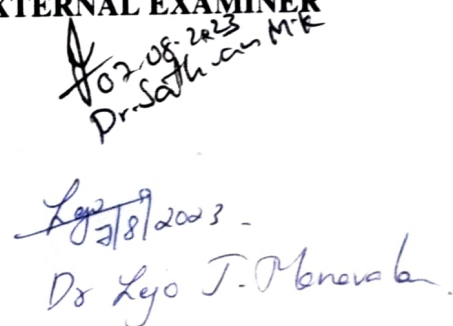 EXTERNAL EXAMINER
07.08.2023
Dr. Sathyan M.K
7/8/2023
Dr Lejo J. Manavalan